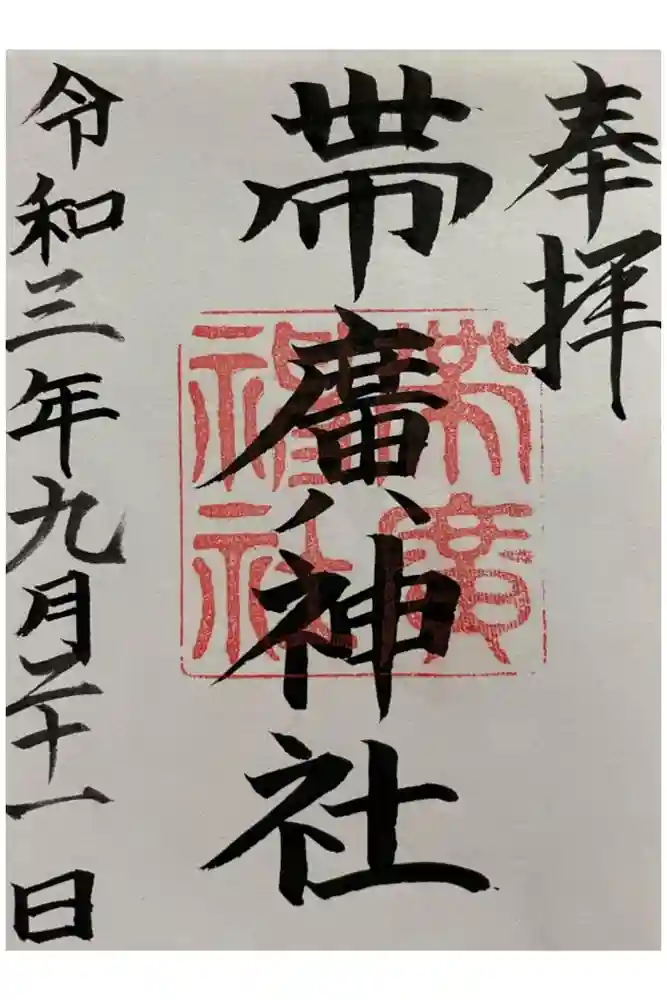 奉拝
帯廣神社
帯廣神社
令和三年九月二十一日